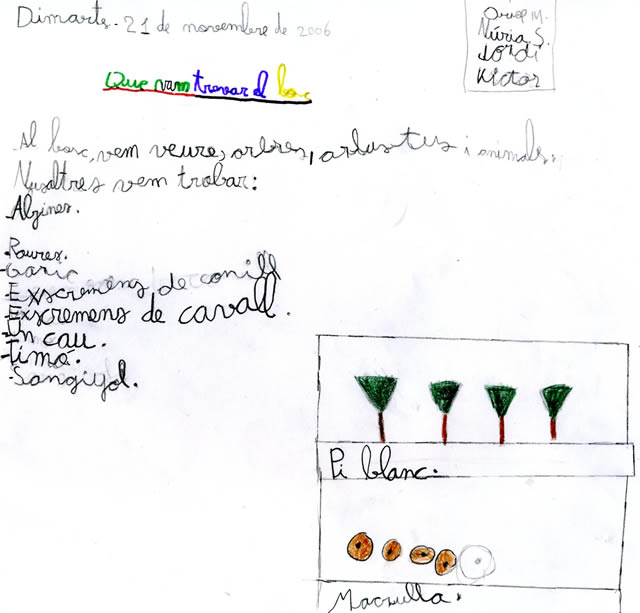 Dimarts. 21 de novembre de 2006
Oriol M.
Núria S.
Jordi
Víctor
Que vam trovar al bosc
Al bosc, vem veure, arbres, arbustus i animals.
Nusaltres vem trobar:
Alzines.
-Roures.
-Garic
-Exscremens de conill
-Exscremens de cavall.
-Un cau.
-Timó.
-Sangiyol.
Pi blanc.